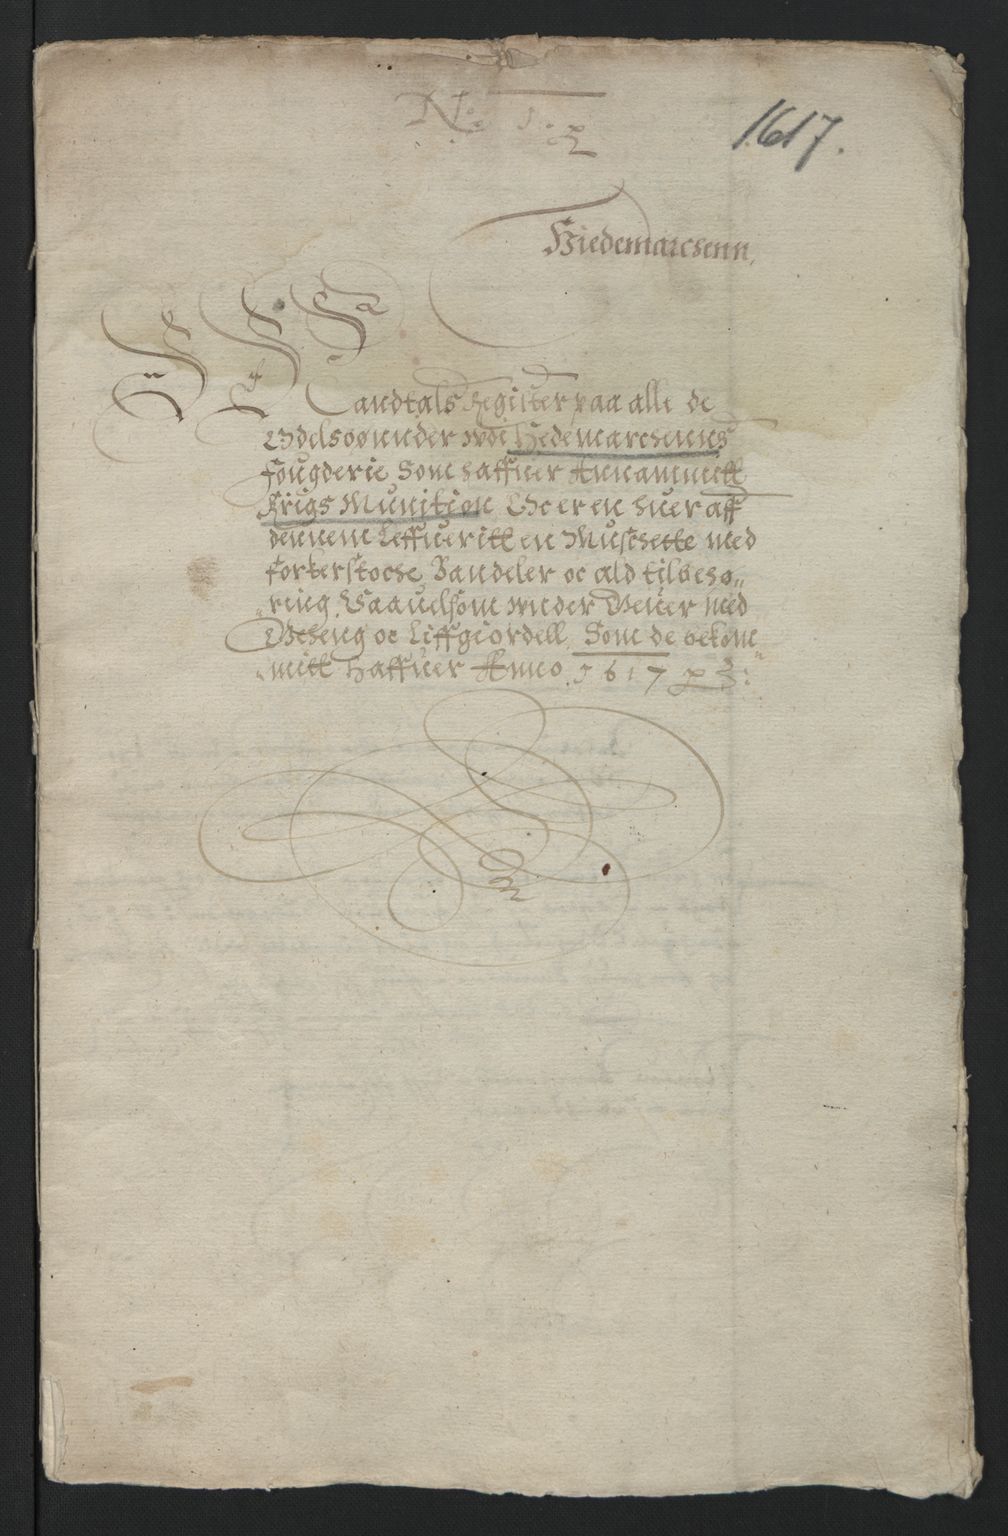 No: 1.
1617.
Hiedemarchenn,
Mandtals Register paa alle de
Odelsbønnder wdi Hedemarchenns
fougderie Som haffuer Annammitt
Krigs Munition Och er en huer aff
dennem Leffueritt en Muschette med
forkerstoche Bandeler oc ald tilbehø„
„ring, Saauelsom under Geuer med
Geheng oc Liffgiordell, Som de bekom„
„mitt haffuer Anno 1617